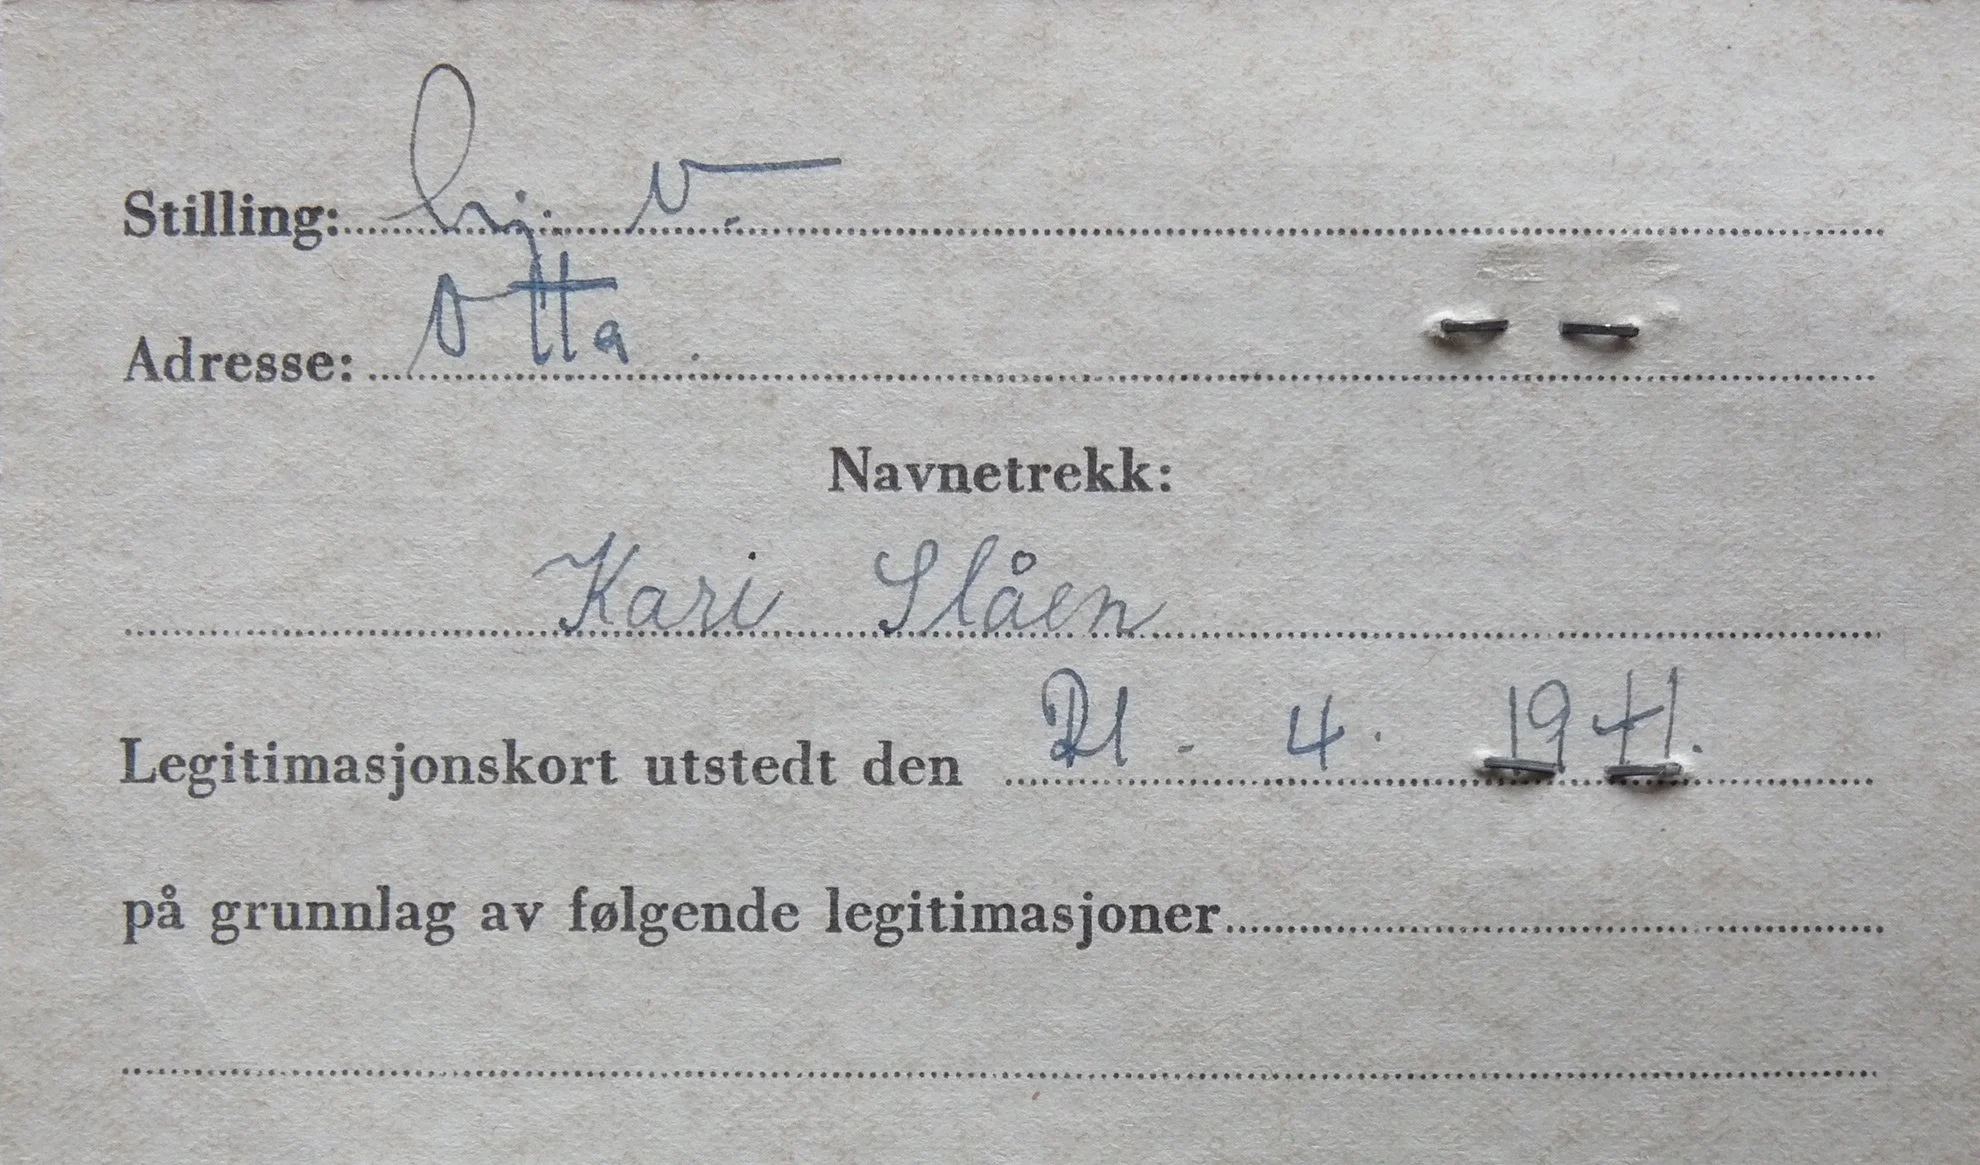 Stilling: hj. v.
Adresse: Otta.
Navnetrekk:
Kari Slåen
Legitimasjonskort utstedt den 21. 4. 1941.
på grunnlag av følgende legitimasjoner